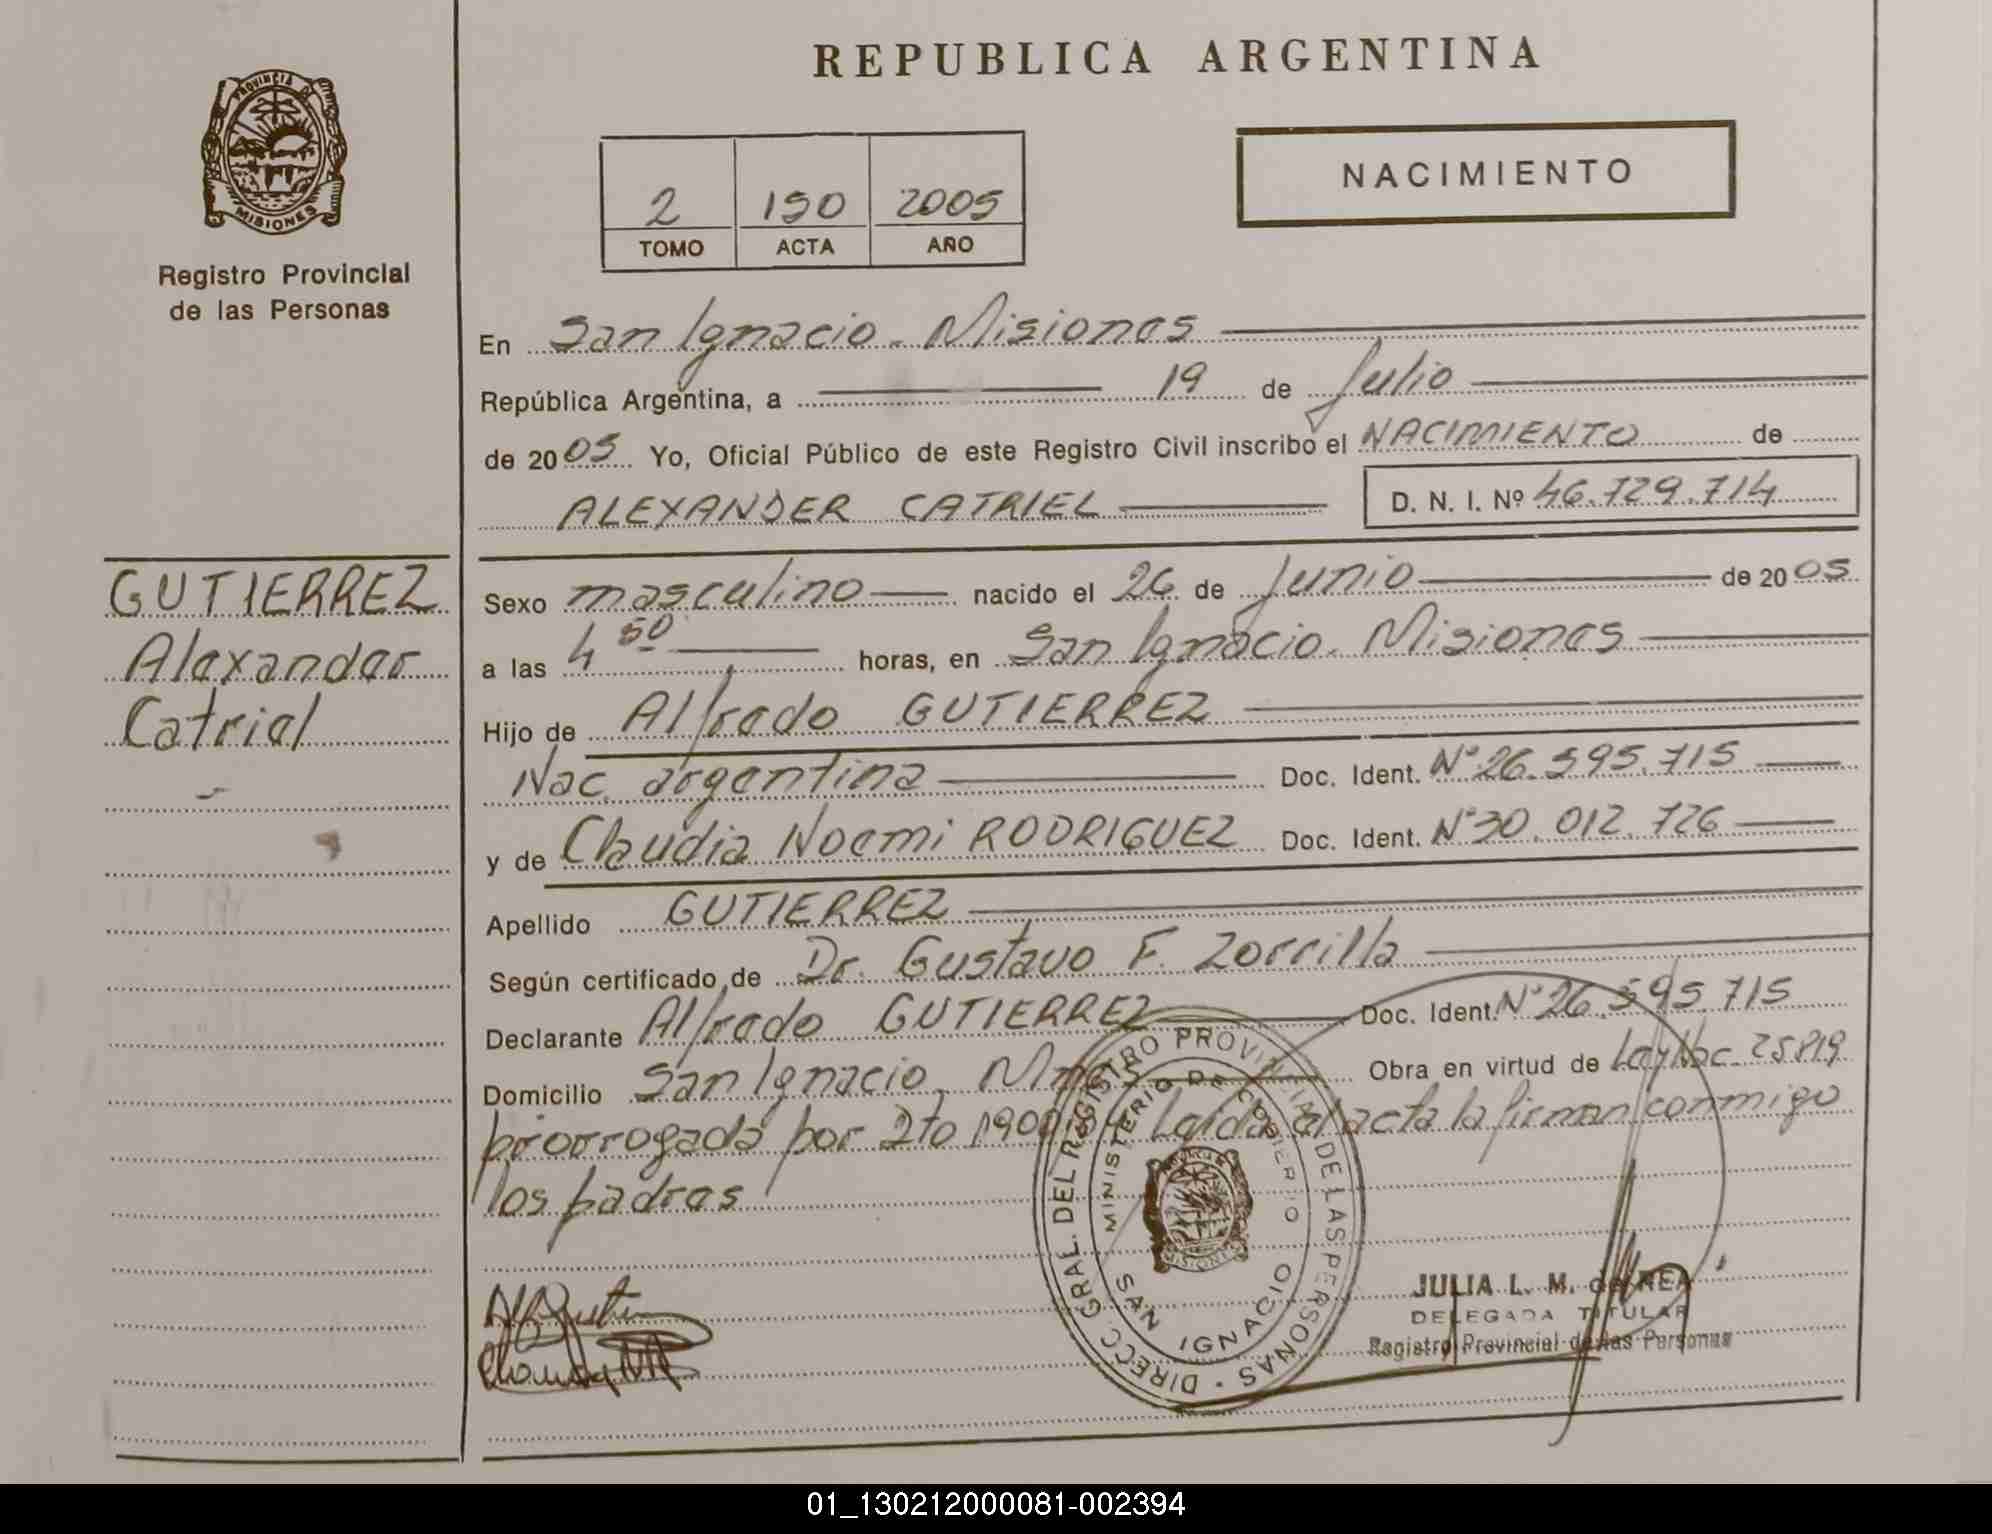 REPUBLICA ARGENTINA
PROVINCIA DE
MISIONES
Registro Provincial
de las Personas
NACIMIENTO
2 150 2005
TOMO ACTA AÑO
En San Ignacio. Misiones
República Argentina, a 19 de Julio
de 2005 Yo, Oficial Público de este Registro Civil inscribo el NACIMIENTO de
ALEXANDER CATRIEL D. N. I. Nº 46.729.714
GUTIERREZ
Alexander
Catriel
Sexo masculino nacido el 26 de Junio de 2005
a las 4 50 horas, en San Ignacio. Misiones
Hijo de Alfredo GUTIERREZ
Nac. argentina Doc. Ident. Nº 26.595.715
y de Claudia Noemi RODRIGUEZ Doc. Ident. Nº 30.012.726
Apellido GUTIERREZ
Según certificado de Dr. Gustavo F. Zorrilla
Declarante Alfredo GUTIERREZ Doc. Ident. Nº 26.595.715
Domicilio San Ignacio. Mnes Obra en virtud de Ley Nac. 25819
prorrogada por Dto 1900 Leida el acta la firman conmigo
los padres
DIRECC. GRAL. DEL REGISTRO PROVINCIAL DE LAS PERSONAS
MINISTERIO DE GOBIERNO
SAN IGNACIO
MISIONES
JULIA L. M. de REA
DELEGADA TITULAR
Registro Provincial de las Personas
01_130212000081-002394